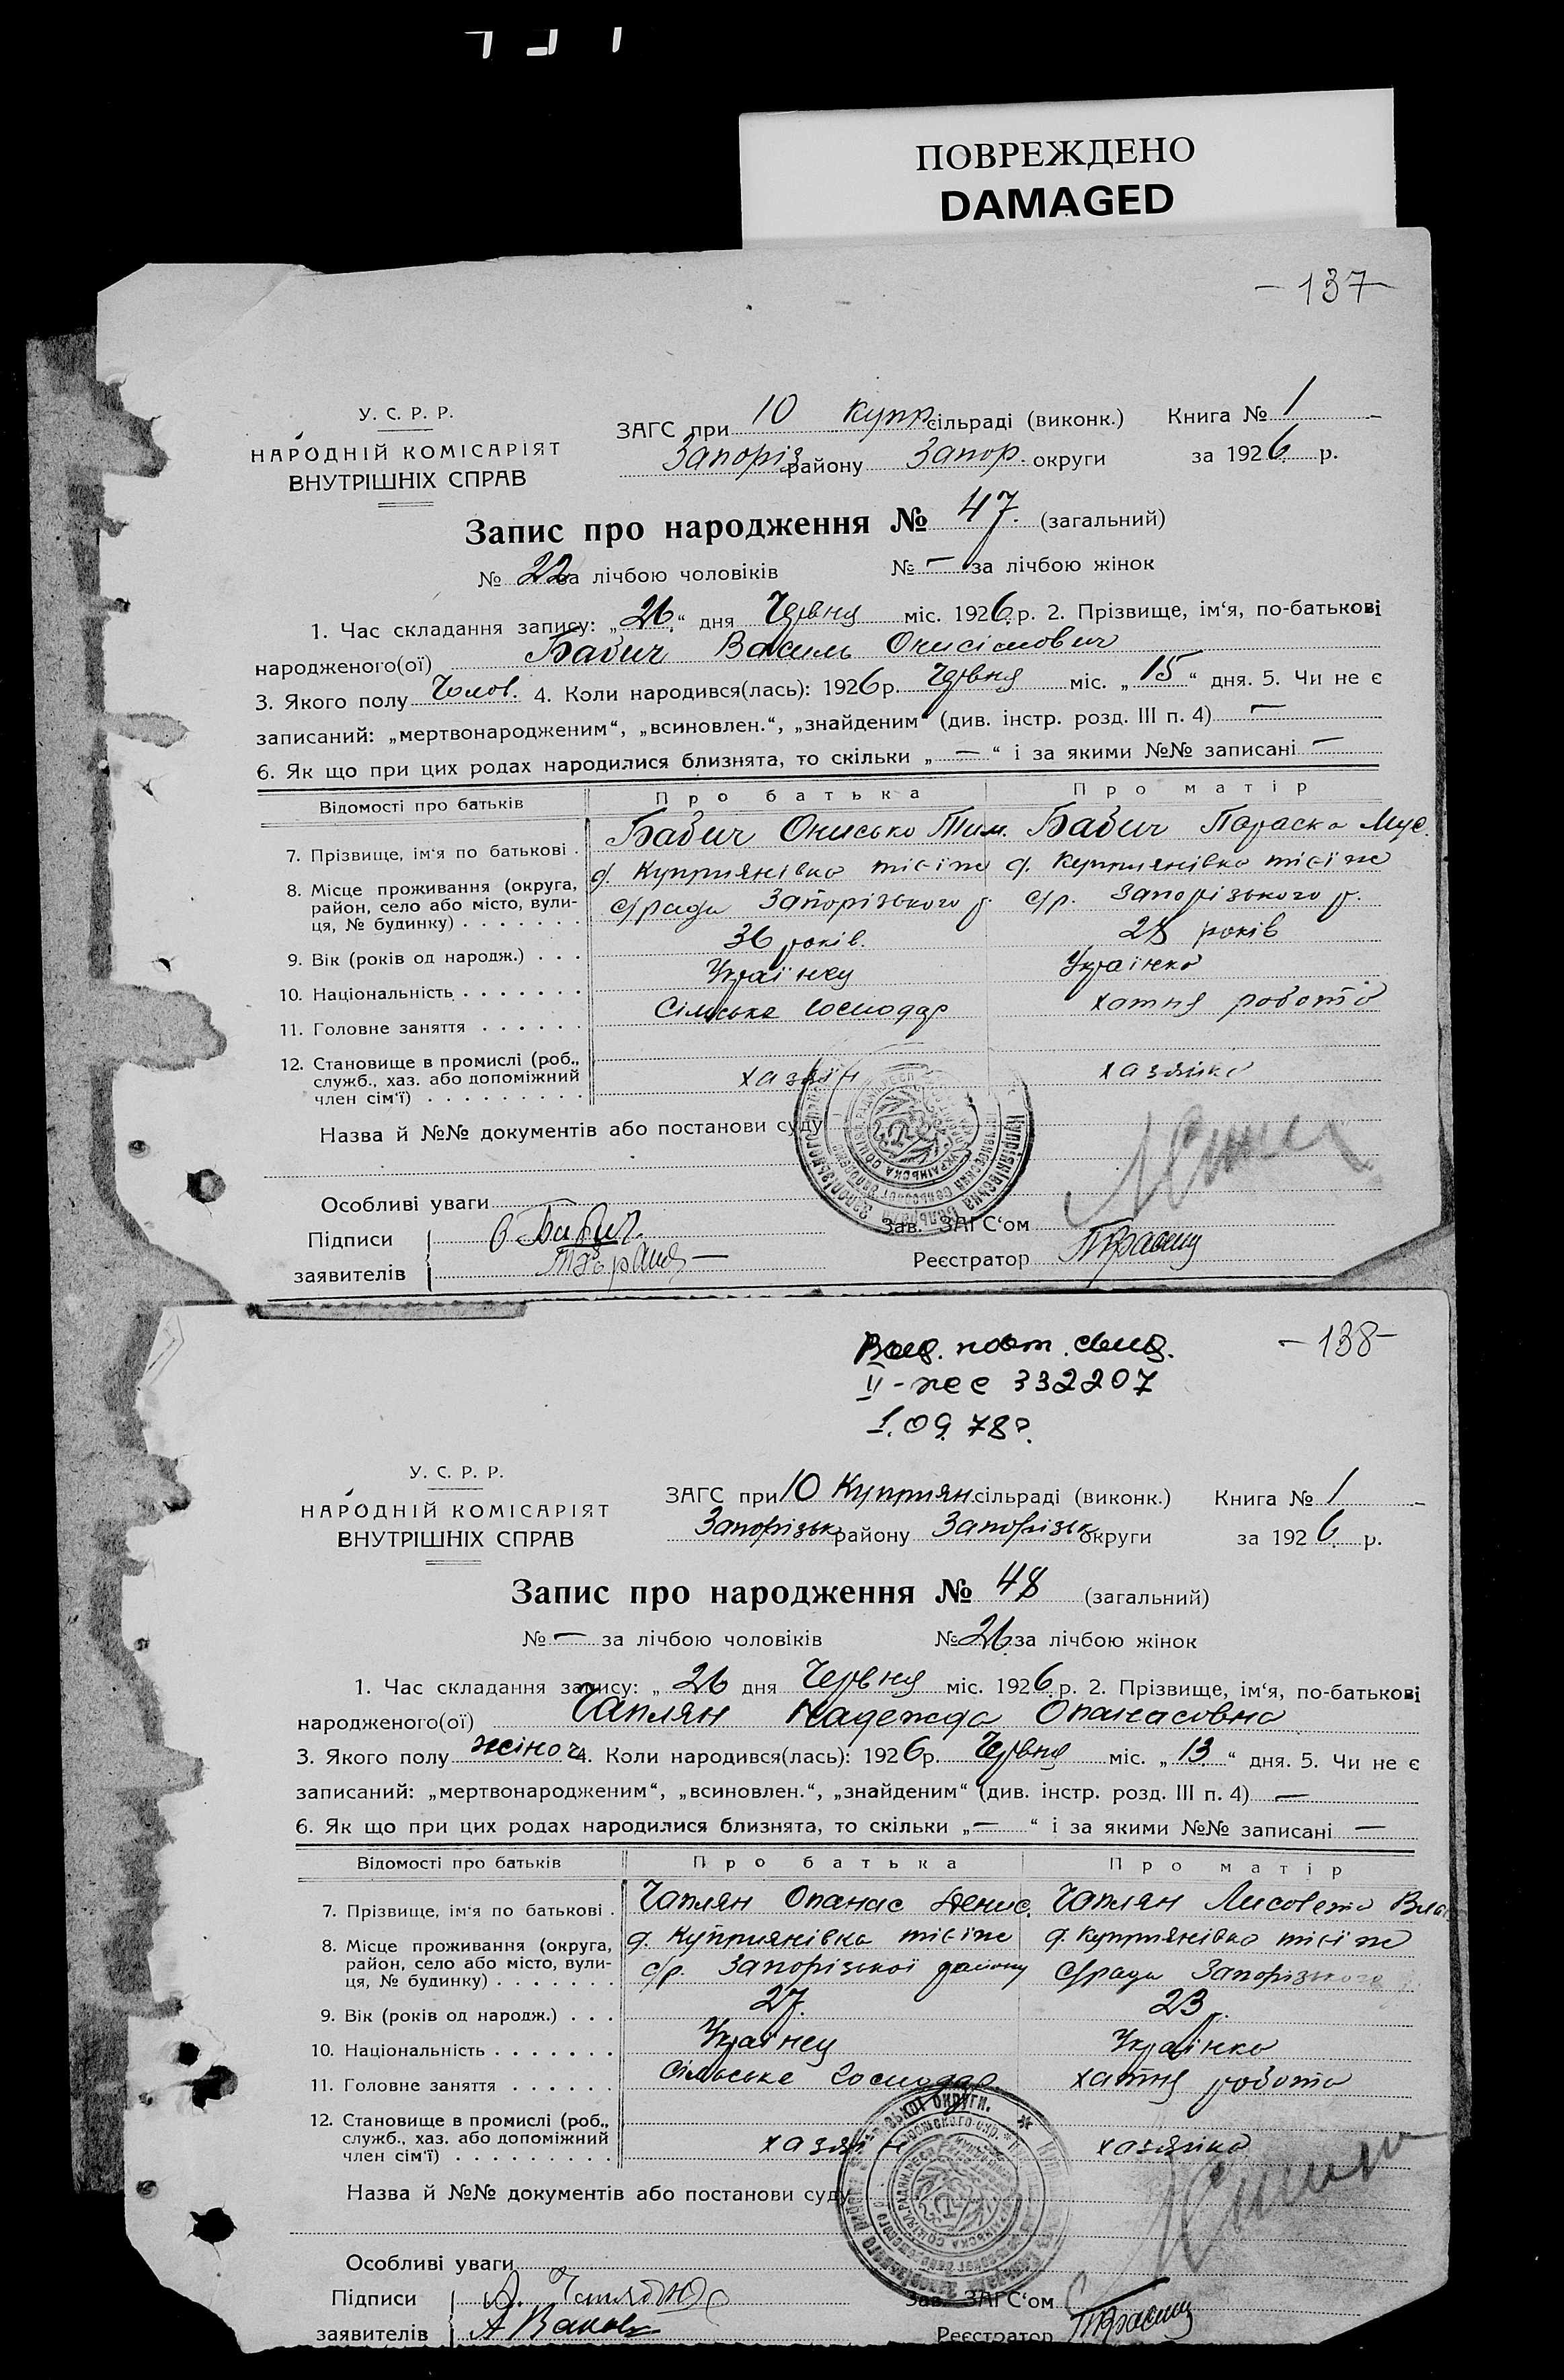 ПОВРЕЖДЕНО
DAMAGED
-137-
У. С. Р. Р.
НАРОДНІЙ КОМІСАРІЯТ
ВНУТРІШНІХ СПРАВ
ЗАГС при 10 Купр сільраді (виконк.) Книга № 1
Запоріз району Запор. округи за 1926 р.
Запис про народження № 47. (загальний)
№ 22 за лічбою чоловіків № — за лічбою жінок
1. Час складання запису: „26“ дня Червня міс. 1926 р. 2. Прізвище, ім‘я, по-батькові
народженого(ої) Бабич Василь Онисімович
3. Якого полу Чолов. 4. Коли народився(лась): 1926 р. Червня міс. „15“ дня. 5. Чи не є
записаний: „мертвонародженим“, „всиновлен.“, „знайденим“ (див. інстр. розд. III п. 4) —
6. Як що при цих родах народилися близнята, то скільки „—“ і за якими №№ записані —
Відомості про батьків Про батька Про матір
7. Прізвище, ім‘я по батькові . Бабич Онисько Тим. Бабич Параска Мус.
8. Місце проживання (округа, район, село або місто, вулиця, № будинку) . . . . . . . с. Куприянівка тієї ж с/ради Запорізького р. с. Куприянівка тієї ж с/р. Запорізького р.
9. Вік (років од народж.) . . . 36 років. 28 років
10. Національність . . . . . . . Українец Українка
11. Головне заняття . . . . . . Сільське господар хатня робота
12. Становище в промислі (роб., служб., хаз. або допоміжний член сім‘ї) . . . . . . . . . хазяїн хазяйка
Назва й №№ документів або постанови суду
Особливі уваги
Підписи О Бабич
заявителів
Зав. ЗАГС‘ом
Реєстратор
-138-
Выд. повт. свид.
II-ЖС 332207
1.09.78г.
У. С. Р. Р.
НАРОДНІЙ КОМІСАРІЯТ
ВНУТРІШНІХ СПРАВ
ЗАГС при 10 Куприян. сільраді (виконк.) Книга № 1
Запорізьк району Запорізьк округи за 1926 р.
Запис про народження № 48 (загальний)
№ — за лічбою чоловіків № 26 за лічбою жінок
1. Час складання запису: „26 дня Червня міс. 1926 р. 2. Прізвище, ім‘я, по-батькові
народженого(ої) Чаплян Надежда Опанасовна
3. Якого полу жіноч 4. Коли народився(лась): 1926 р. Червня міс. „13“ дня. 5. Чи не є
записаний: „мертвонародженим“, „всиновлен.“, „знайденим“ (див. інстр. розд. III п. 4) —
6. Як що при цих родах народилися близнята, то скільки „—“ і за якими №№ записані —
Відомості про батьків Про батька Про матір
7. Прізвище, ім‘я по батькові . Чаплян Опанас Денис. Чаплян Лисовета Влас
8. Місце проживання (округа, район, село або місто, вулиця, № будинку) . . . . . . . с. Куприянівка тієї ж с/р. Запорізької району с. Куприянівка тієї ж с/ради Запорізького
9. Вік (років од народж.) . . . 27. 23
10. Національність . . . . . . . Українец Українка
11. Головне заняття . . . . . . Сільське господар хатня робота
12. Становище в промислі (роб., служб., хаз. або допоміжний член сім‘ї) . . . . . . . . . хазяїн хазяйка
Назва й №№ документів або постанови суду
Особливі уваги
Підписи
заявителів
Зав. ЗАГС‘ом
Реєстратор